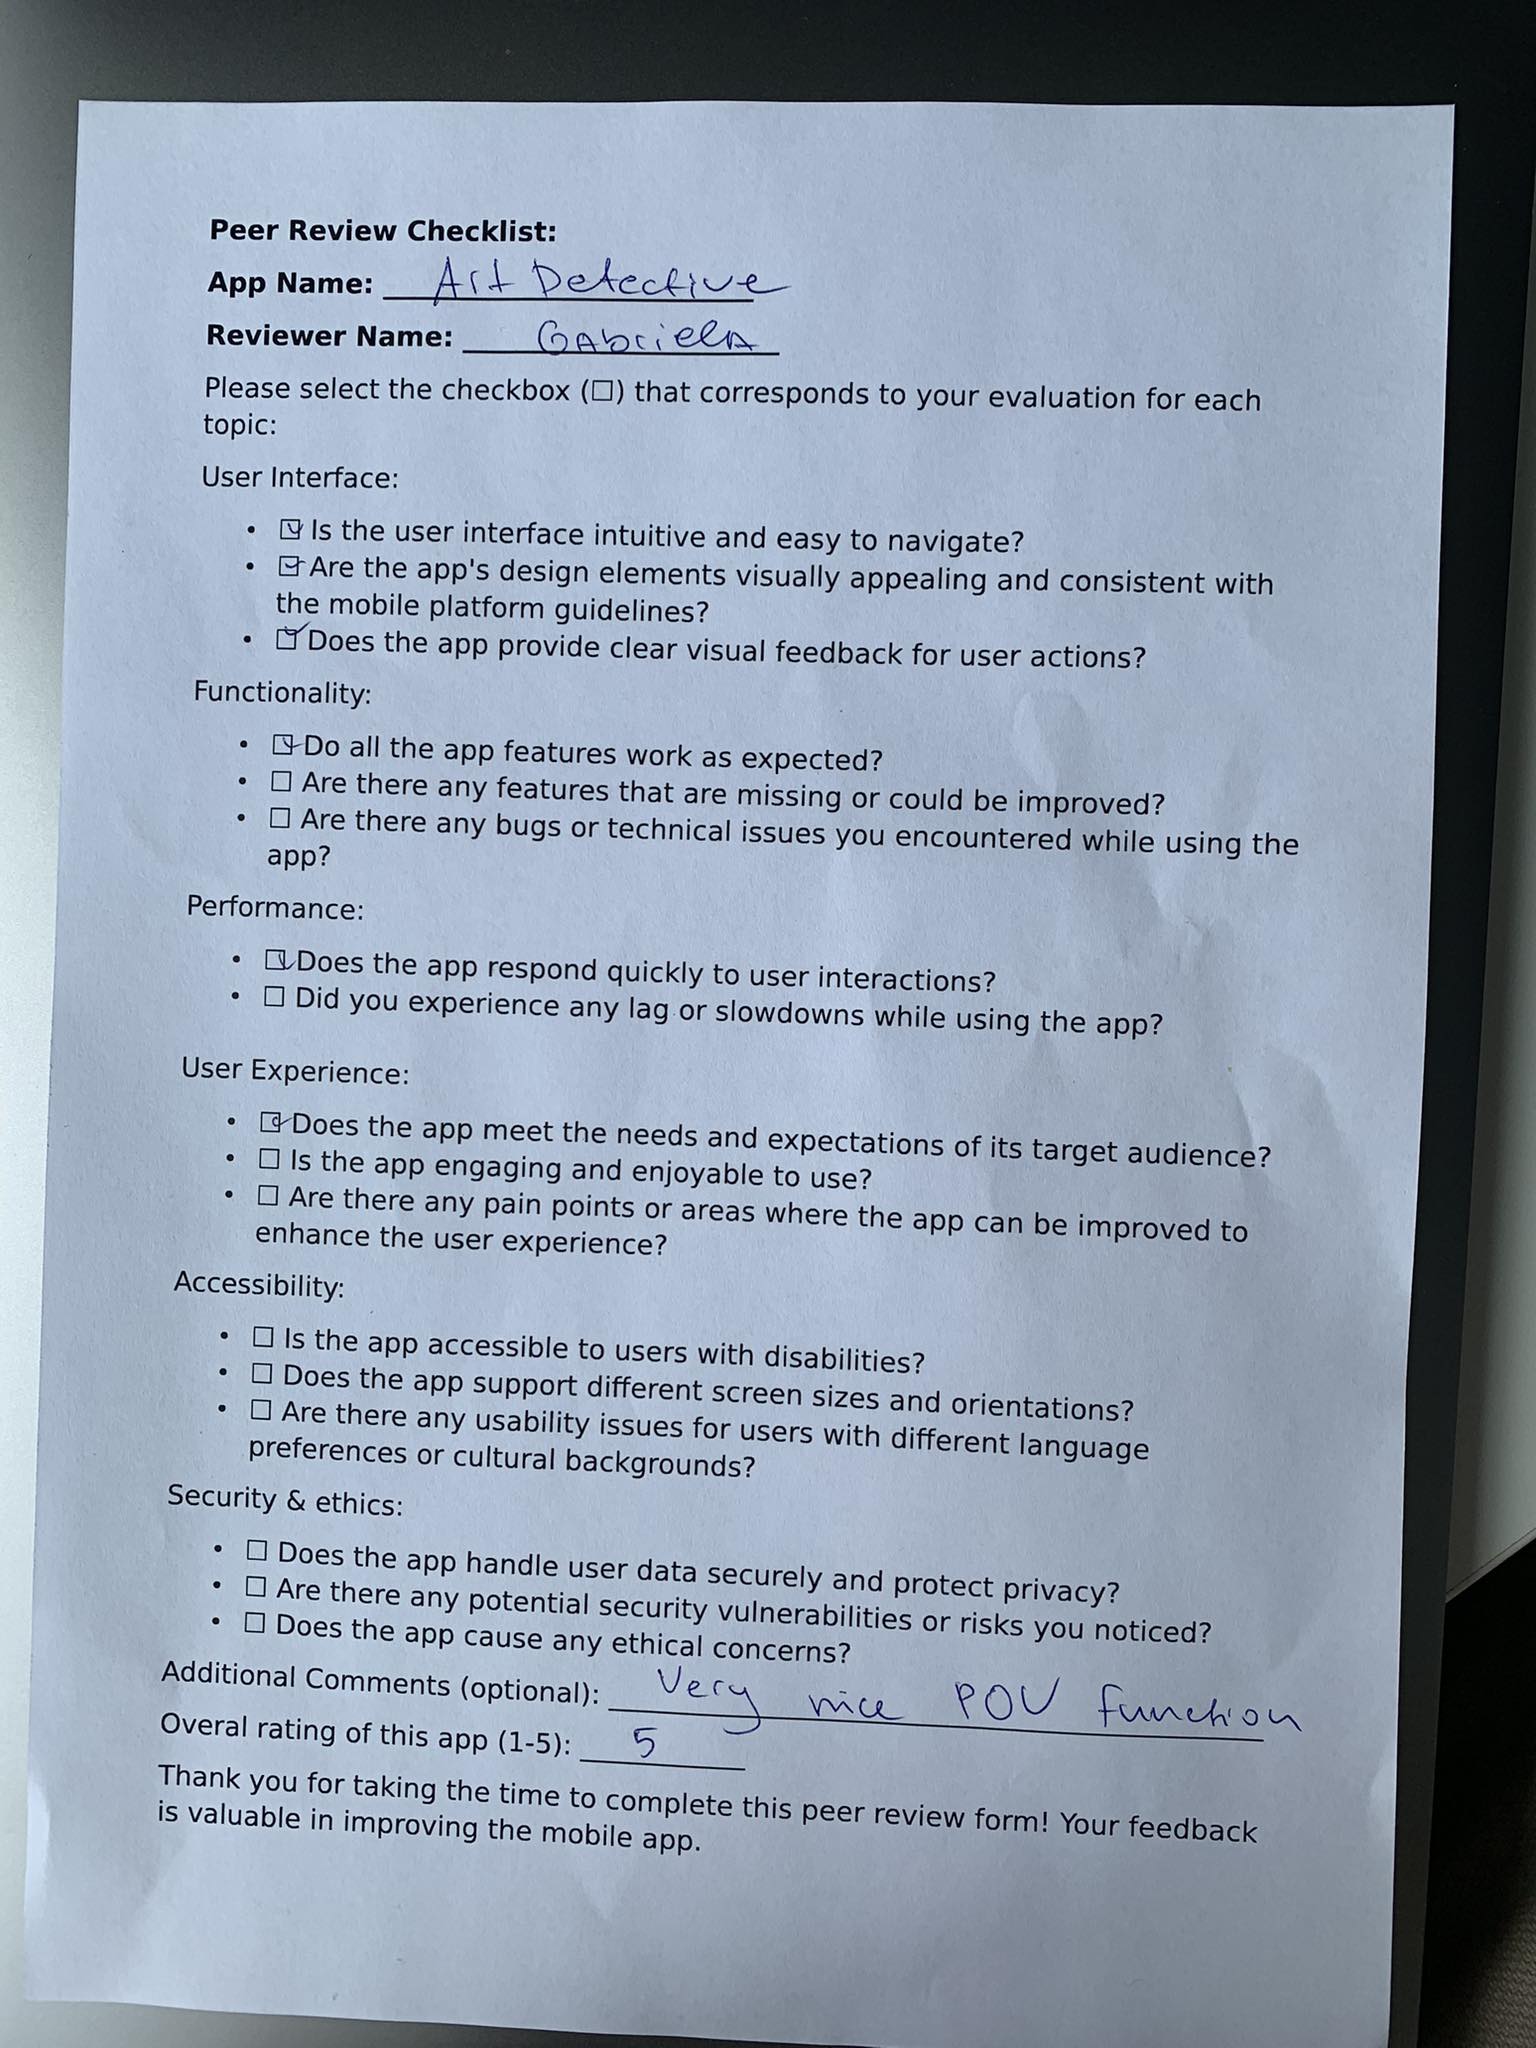 Peer Review Checklist:
App Name: Art Detective
Reviewer Name: GAbrielA
Please select the checkbox (☐) that corresponds to your evaluation for each
topic:
User Interface:
• ☑ Is the user interface intuitive and easy to navigate?
• ☑ Are the app's design elements visually appealing and consistent with
the mobile platform guidelines?
• ☑ Does the app provide clear visual feedback for user actions?
Functionality:
• ☑ Do all the app features work as expected?
• ☐ Are there any features that are missing or could be improved?
• ☐ Are there any bugs or technical issues you encountered while using the
app?
Performance:
• ☑ Does the app respond quickly to user interactions?
• ☐ Did you experience any lag or slowdowns while using the app?
User Experience:
• ☑ Does the app meet the needs and expectations of its target audience?
• ☐ Is the app engaging and enjoyable to use?
• ☐ Are there any pain points or areas where the app can be improved to
enhance the user experience?
Accessibility:
• ☐ Is the app accessible to users with disabilities?
• ☐ Does the app support different screen sizes and orientations?
• ☐ Are there any usability issues for users with different language
preferences or cultural backgrounds?
Security & ethics:
• ☐ Does the app handle user data securely and protect privacy?
• ☐ Are there any potential security vulnerabilities or risks you noticed?
• ☐ Does the app cause any ethical concerns?
Additional Comments (optional): Very nice POV function
Overal rating of this app (1-5): 5
Thank you for taking the time to complete this peer review form! Your feedback
is valuable in improving the mobile app.